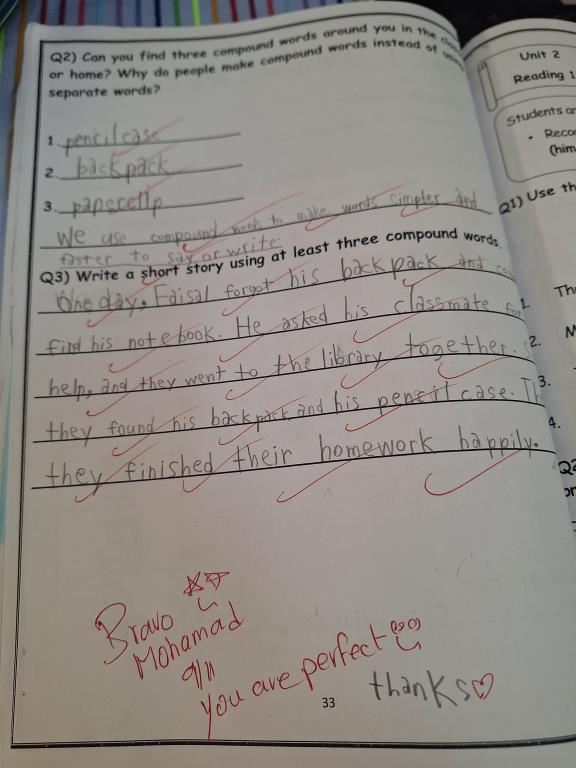 Q2) Can you find three compound words around you in the
or home? Why do people make compound words instead of
separate words?
1. pencilcase
2. backpack
3. paperclip
We use compound words to make words simpler and
faster to say or write.
Q3) Write a short story using at least three compound words.
One day, Faisal forgot his backpack and
find his notebook. He asked his classmate for
help, and they went to the library together.
they found his backpack and his pencil case.
they finished their homework happily.
Bravo
Mohamad
9/11
you are perfect
thanks
33
Unit 2
Reading 1
Students
Q1) Use
1.
2.
3.
4.